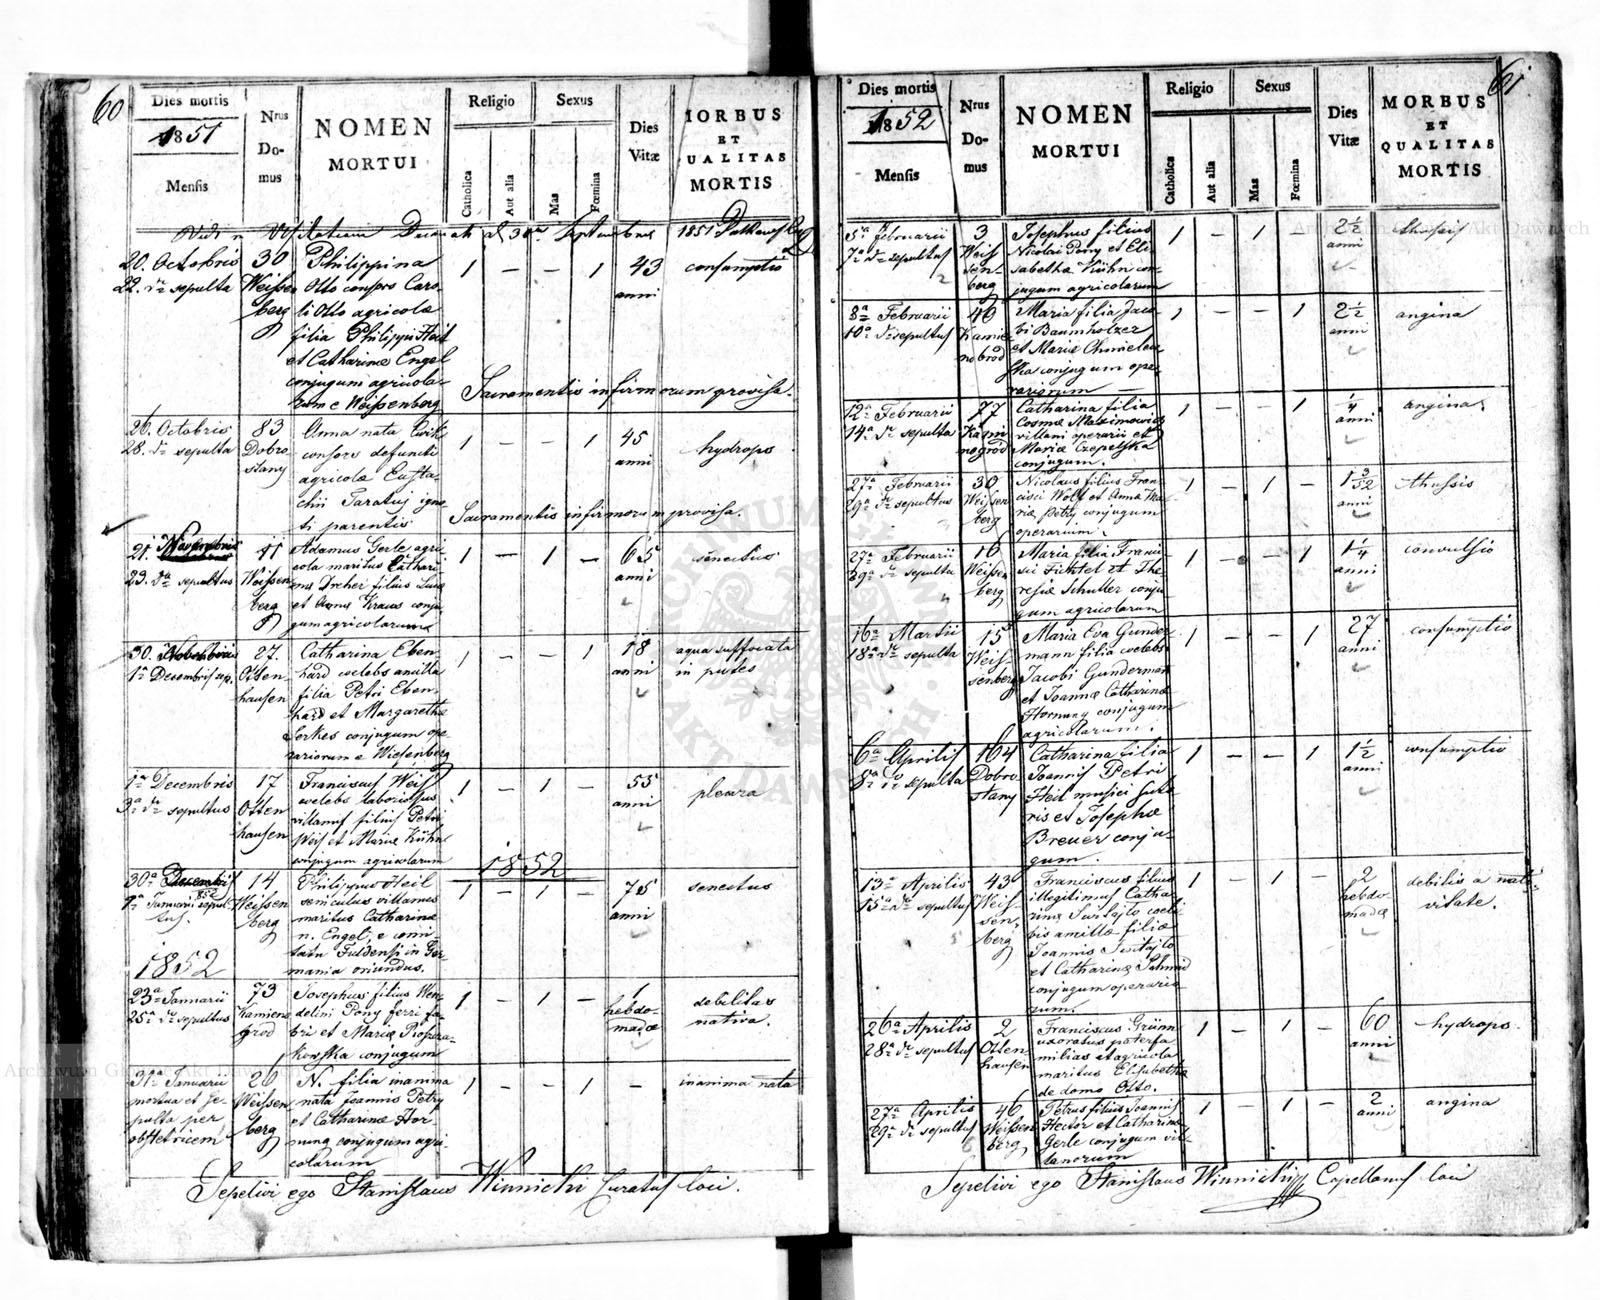 60
Dies mortis
1851
Mensis
Nrus
Do-
mus
NOMEN
MORTUI
Religio
Catholica
Aut alia
Sexus
Mas
Fœmina
Dies
Vitæ
MORBUS
ET
QUALITAS
MORTIS
Septembris 1851
20. Octobris
22. d sepulta
30
Weissen
berg
Philippina
Otto consors Caro-
li Otto agricolæ
filia Philippi Heil
et Catharinæ Engel
conjugum agricola-
rum e Weissenberg
1 – – 1
43
anni
consumptio
Sacramentis infirmorum provisa.
26. Octobris
28. d sepulta
83
Dobro
stany
Anna nata
consors defuncti
agricolæ Eusta-
chii Taratuj igno-
ti parentis
1 – – 1
45
anni
hydrops
Sacramentis infirmorum provisa.
21. Novembris
23. d sepultus
11
Weissen
berg
Adamus Gerle agri
cola maritus Cathari
næ Dreher filius
et Annæ Kraus conju
gum agricolarum
1 – 1 –
65
anni
senectus
30. Novembris
1a Decembris sep.
27.
Otten
hausen
Catharina Eben
hard coelebs ancilla
filia Petri Eben
hard et Margarethæ
Serkes conjugum ope
rariorum e Wiesenberg
1 – – 1
18
anni
aqua suffocata
in puteo
1a Decembris
3a d sepultus
17
Otten
hausen
Franciscus Weiss
coelebs laboriosus
villanus filius Petri
Weis et Mariæ Kühn
conjugum agricolarum
1 – 1 –
55
anni
pleura
1852
30a Decembris
1a Januarii 852 sepul-
tus.
14
Weissen
berg
Philippus Heil
seniculus villanus
maritus Catharinæ
n. Engel, e comi
tatu Fuldensi in Ger
mania oriundus.
1 – 1 –
75
anni
senectus
1852
23a Januarii
25a d sepultus
73
Kamieno
brod
Josephus filius Wen
delini Pony ferri fa
bri et Mariæ
kowska conjugum
1 – 1 –
1
hebdo-
madæ
debilitas
nativa.
31a Januarii
mortua et se-
pulta per
obstetricem
26
Weissen
berg
N. filia inanima
nata Joannis Petry
et Catharinæ Hor
nung conjugum agri-
colarum
1 – – 1
–
inanima nata
Sepelivi ego Stanislaus Winnicki Curatus loci.
61
Dies mortis
1852
Mensis
Nrus
Do-
mus
NOMEN
MORTUI
Religio
Catholica
Aut alia
Sexus
Mas
Fœmina
Dies
Vitæ
MORBUS
ET
QUALITAS
MORTIS
5a Februarii
7a d sepultus
3
Weis
sen-
berg
Josephus filius
Nicolai Pony et Eli
sabethæ Kühn con
jugum agricolarum
1 – 1
2 1/2
anni
thussis
8a Februarii
10a d sepultus
46
Kamie
nobrod
Maria filia Jaco
bi Baumholzer
et Mariæ Chmielew
ska conjugum ope
rariorum
1 – – 1
2 1/2
anni
angina
12a Februarii
14a d sepulta
77
Kami
nobrod
Catharina filia
Cosmæ Maximowicz
villani operarii et
Mariæ Czepelska
conjugum.
1 – – 1
1/4
anni
angina
27a Februarii
29a d sepultus
30
Weissen
berg
Nicolaus filius Fran
cisci Wolf et Annæ Ma
riæ Petry conjugum
operarium.
1 – 1 –
1 3/52
anni
thussis
27a Februarii
29a d sepulta
16
Weissen
berg
Maria filia Franci
sci Fichtel et The
resiæ Schuller conju
gum agricolarum
1 – – 1
1 1/4
anni
convulsio
16a Martii
18a d sepulta
15
Weis
senberg
Maria Eva Gunder
mann filia coelebs
Jacobi Gunderman
et Joannæ Catharinæ
Hornung conjugum
agricolarum.
1 – – 1
27
anni
consumptio
6a Aprilis
8a d sepulta
164
Dobro
stany
Catharina filia
Joannis Petri
Heil musici
ris et Josephæ
Breuer conju-
gum.
1 – – 1
1 1/2
anni
consumptio
13a Aprilis
15a d sepultus
43
Weis
sen
berg
Franciscus filius
illegitimus Catha
rinæ coeli
bis ancillæ filiæ
Joannis
et Catharinæ Schmid
conjugum operario
rum.
1 – 1 –
2
hebdo-
madæ
debilis a nati-
vitate.
26a Aprilis
28a d sepultus
2
Otten
hausen
Franciscus Grünn
uxoratus paterfa
milias et agricola
maritus Elisabethæ
de domo Otto.
1 – 1 –
60
anni
hydrops
27a Aprilis
29a d sepultus
46
Weissen
berg
Petrus filius Joannis
Hector et Catharinæ
Gerle conjugum vil
lanorum
1 – 1 –
2
anni
angina
Sepelivi ego Stanislaus Winnicki Capellanus loci